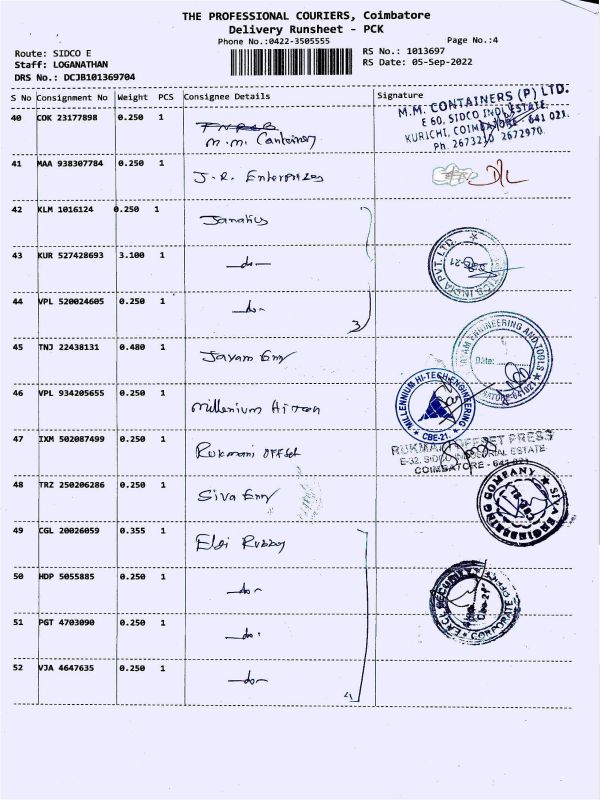 THE PROFESSIONAL COURIERS, Coimbatore
Delivery Runsheet - PCK
Phone No.:0422-3505555
Page No.:4
Route: SIDCO E
RS No.: 1013697
Staff: LOGANATHAN
RS Date: 05-Sep-2022
DRS No.: DCJB101369704
S No Consignment No Weight PCS Consignee Details Signature
40 COK 23177898 0.250 1
M.M. Containers
M.M. CONTAINERS (P) LTD.
E 60, SIDCO INDL ESTATE,
KURICHI, COIMBATORE - 641 021.
PH: 2673210 2672970
41 MAA 938307784 0.250 1 J.R. Enterprises
42 KLM 1016124 0.250 1 Janatics
43 KUR 527428693 3.100 1 —do—
INDIA PVT. LTD.
44 VPL 520024605 0.250 1 —do—
3
45 TNJ 22438131 0.480 1 Jayam Engg
ENGINEERING AND TOOLS
Date:
46 VPL 934205655 0.250 1 Millenium Hi Tech
MILLENNIUM HI-TECH ENGINEERING
CBE-21.
47 IXM 502087499 0.250 1 Rukmani OFFset
RUKMANI OFFSET PRESS
E-32, SIDCO INDUSTRIAL ESTATE
COIMBATORE - 641 021
48 TRZ 250206286 0.250 1 Siva Engg
SIVA ENGINEERING COMPANY
49 CGL 20026059 0.355 1 Elgi Rubber
50 HDP 5055885 0.250 1 —do—
SECURITY
CORPORATE
51 PGT 4703090 0.250 1 —do—
52 VJA 4647635 0.250 1 —do—
4